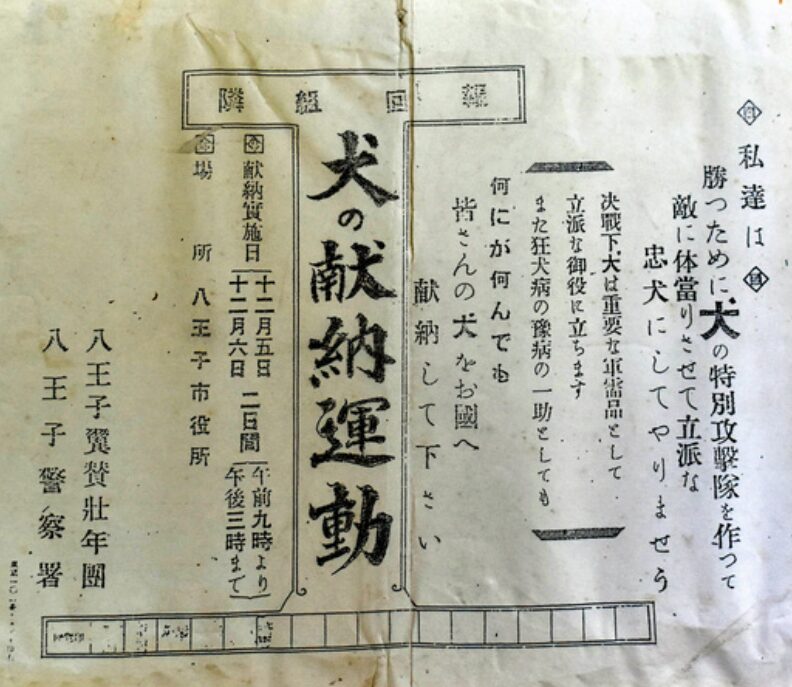 私達は
勝つために犬の特別攻撃隊を作つて
敵に体當りさせて立派な
忠犬にしてやりませう
決戰下犬は重要な軍需品として
立派な御役に立ちます
また狂犬病の豫病の一助としても
何にが何んでも
皆さんの犬をお國へ
献納して下さい
隣組回報
犬の献納運動
献納實施日
十二月五日
十二月六日
二日間
午前九時より
午後三時まで
場所 八王子市役所
八王子翼賛壯年團
八王子警察署